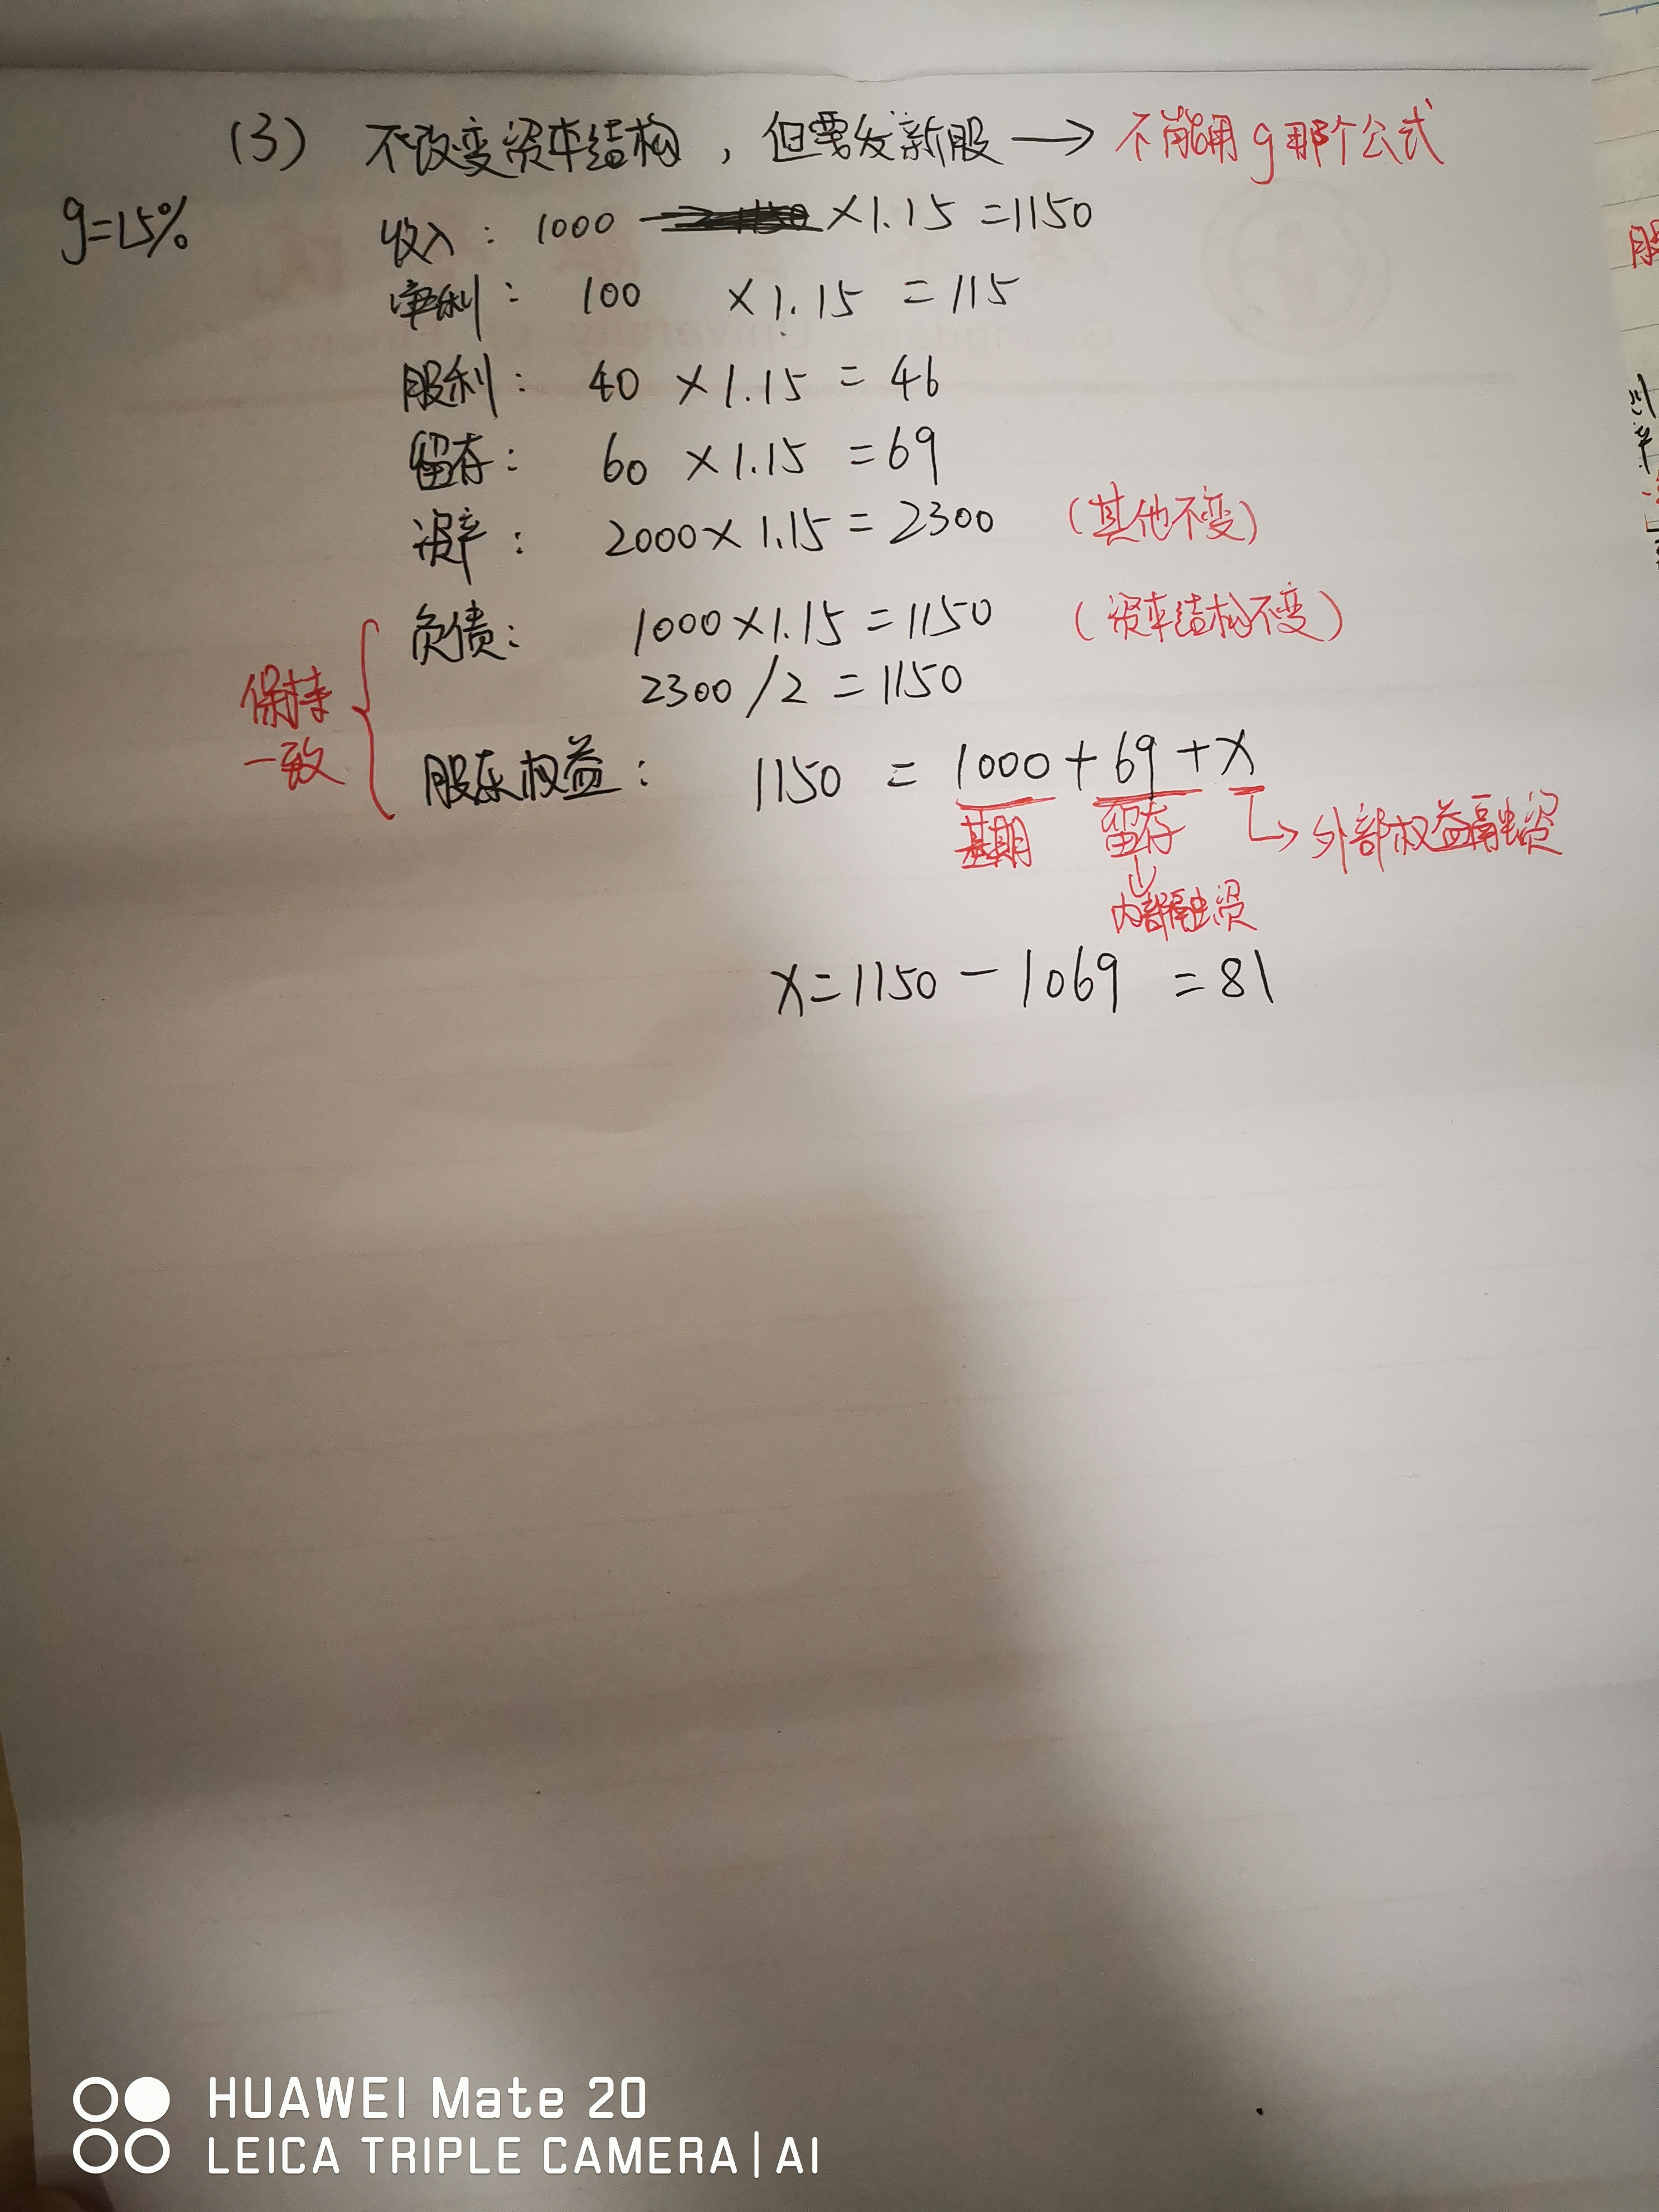 (3) 不改变资本结构，但需发新股 → 不能用g那个公式
g=15%
收入：1000 ×1.15 =1150
净利：100 ×1.15 =115
股利：40 ×1.15 = 46
留存：60 ×1.15 =69
资产：2000×1.15=2300 (其他不变)
负债：1000×1.15=1150 (资本结构不变)
2300/2=1150
保持
一致
股东权益：1150 = 1000+69+x
基期 留存 → 外部权益融资
内部融资
x=1150-1069 =81
HUAWEI Mate 20
LEICA TRIPLE CAMERA | AI